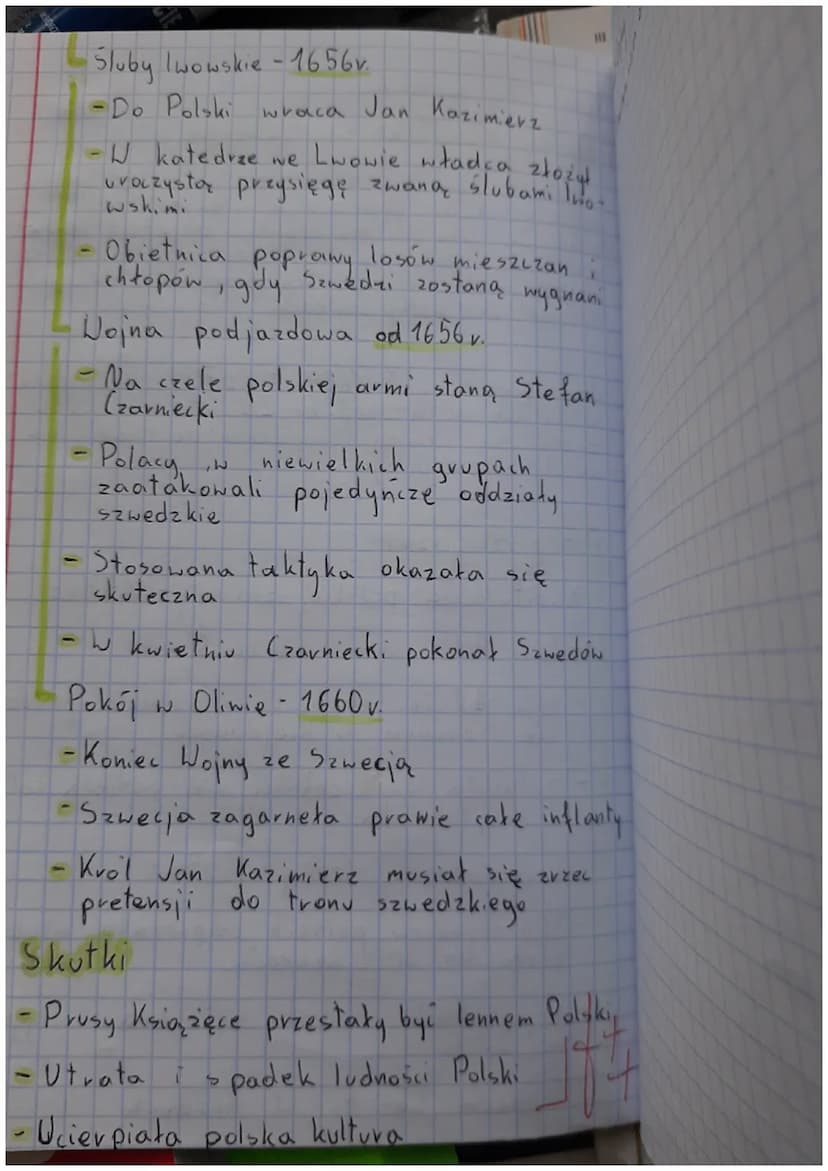 Śluby lwowskie - 1656r.
- Do Polski wraca Jan Kazimierz
- W katedrze we Lwowie władca złożył
uroczystą przysięgę zwaną ślubami lwo-
wskimi
- Obietnica poprawy losów mieszczan i
chłopów, gdy Szwedzi zostaną wygnani
Wojna podjazdowa od 1656r.
- Na czele polskiej armi staną Stefan
Czarniecki
- Polacy w niewielkich grupach
zaatakowali pojedyńcze oddziały
szwedzkie
- Stosowana taktyka okazała się
skuteczna
- W kwietniu Czarniecki pokonał Szwedów
Pokój w Oliwie - 1660r.
- Koniec Wojny ze Szwecją
- Szwecja zagarneła prawie całe inflanty
- Król Jan Kazimierz musiał się zrzec
pretensji do tronu szwedzkiego
Skutki
- Prusy Książęce przestały być lennem Polski
- Utrata i spadek ludności Polski
- Ucierpiała polska kultura